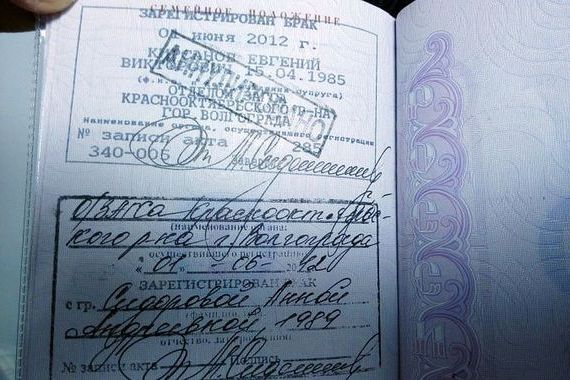 СЕМЕЙНОЕ ПОЛОЖЕНИЕ
ЗАРЕГИСТРИРОВАН БРАК
01 июня 2012 г.
ЕВГЕНИЙ
15.04.1985
ОТДЕЛОМ ЗАГСА
КРАСНООКТЯБРЬСКОГО Р-НА
ГОР. ВОЛГОГРАДА
Наименование органа, осуществившего регистрацию
№ записи акта 285
340-006 Заверено
О/ЗАГСа Краснооктябрь-
ского р-на г. Волгограда
(наименование органа:
осуществившего регистрацию)
"01" - 06 - 2012
ЗАРЕГИСТРИРОВАН БРАК
с гр. Сидоровой Анной
Андреевной, 1989
отчество, дата рожд.
№ записи акта Подпись